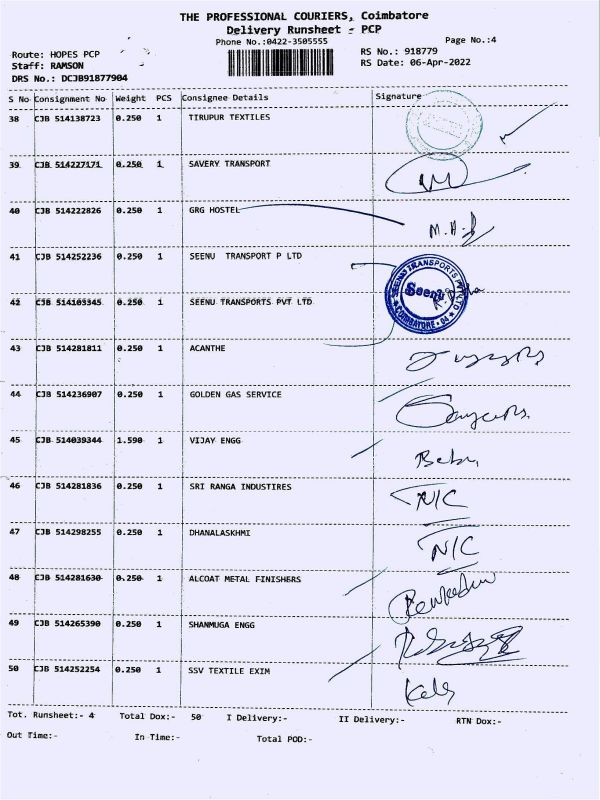 THE PROFESSIONAL COURIERS, Coimbatore
Delivery Runsheet - PCP
Phone No.:0422-3505555
Page No.:4
Route: HOPES PCP
RS No.: 918779
Staff: RAMSON
RS Date: 06-Apr-2022
DRS No.: DCJB91877904
S No Consignment No Weight PCS Consignee Details Signature
38 CJB 514138723 0.250 1 TIRUPUR TEXTILES
39 CJB 514227171 0.250 1 SAVERY TRANSPORT
40 CJB 514222826 0.250 1 GRG HOSTEL
41 CJB 514252236 0.250 1 SEENU TRANSPORT P LTD
SEENU TRANSPORTS PVT LTD
Seenu
COIMBATORE - 04
42 CJB 514103345 0.250 1 SEENU TRANSPORTS PVT LTD
43 CJB 514281811 0.250 1 ACANTHE
44 CJB 514236907 0.250 1 GOLDEN GAS SERVICE
45 CJB 514039344 1.590 1 VIJAY ENGG
46 CJB 514281836 0.250 1 SRI RANGA INDUSTIRES N/C
47 CJB 514298255 0.250 1 DHANALASKHMI N/C
48 CJB 514281630 0.250 1 ALCOAT METAL FINISHERS
49 CJB 514265390 0.250 1 SHANMUGA ENGG
50 CJB 514252254 0.250 1 SSV TEXTILE EXIM
Tot. Runsheet:- 4 Total Dox:- 50 I Delivery:- II Delivery:- RTN Dox:-
Out Time:- In Time:- Total POD:-